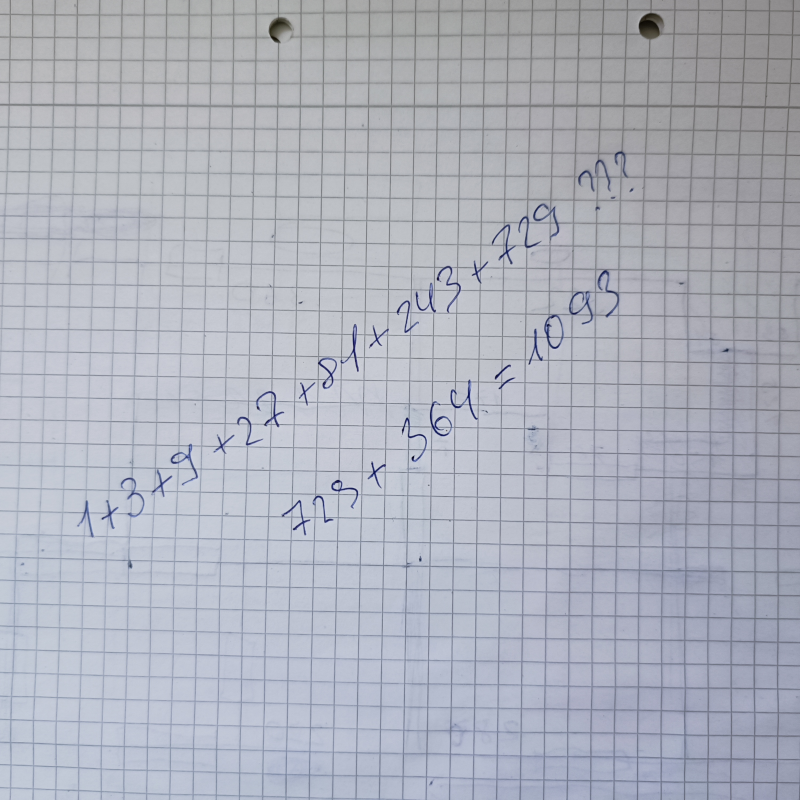 1+3+9+27+81+243+729 ???
729+364=1093